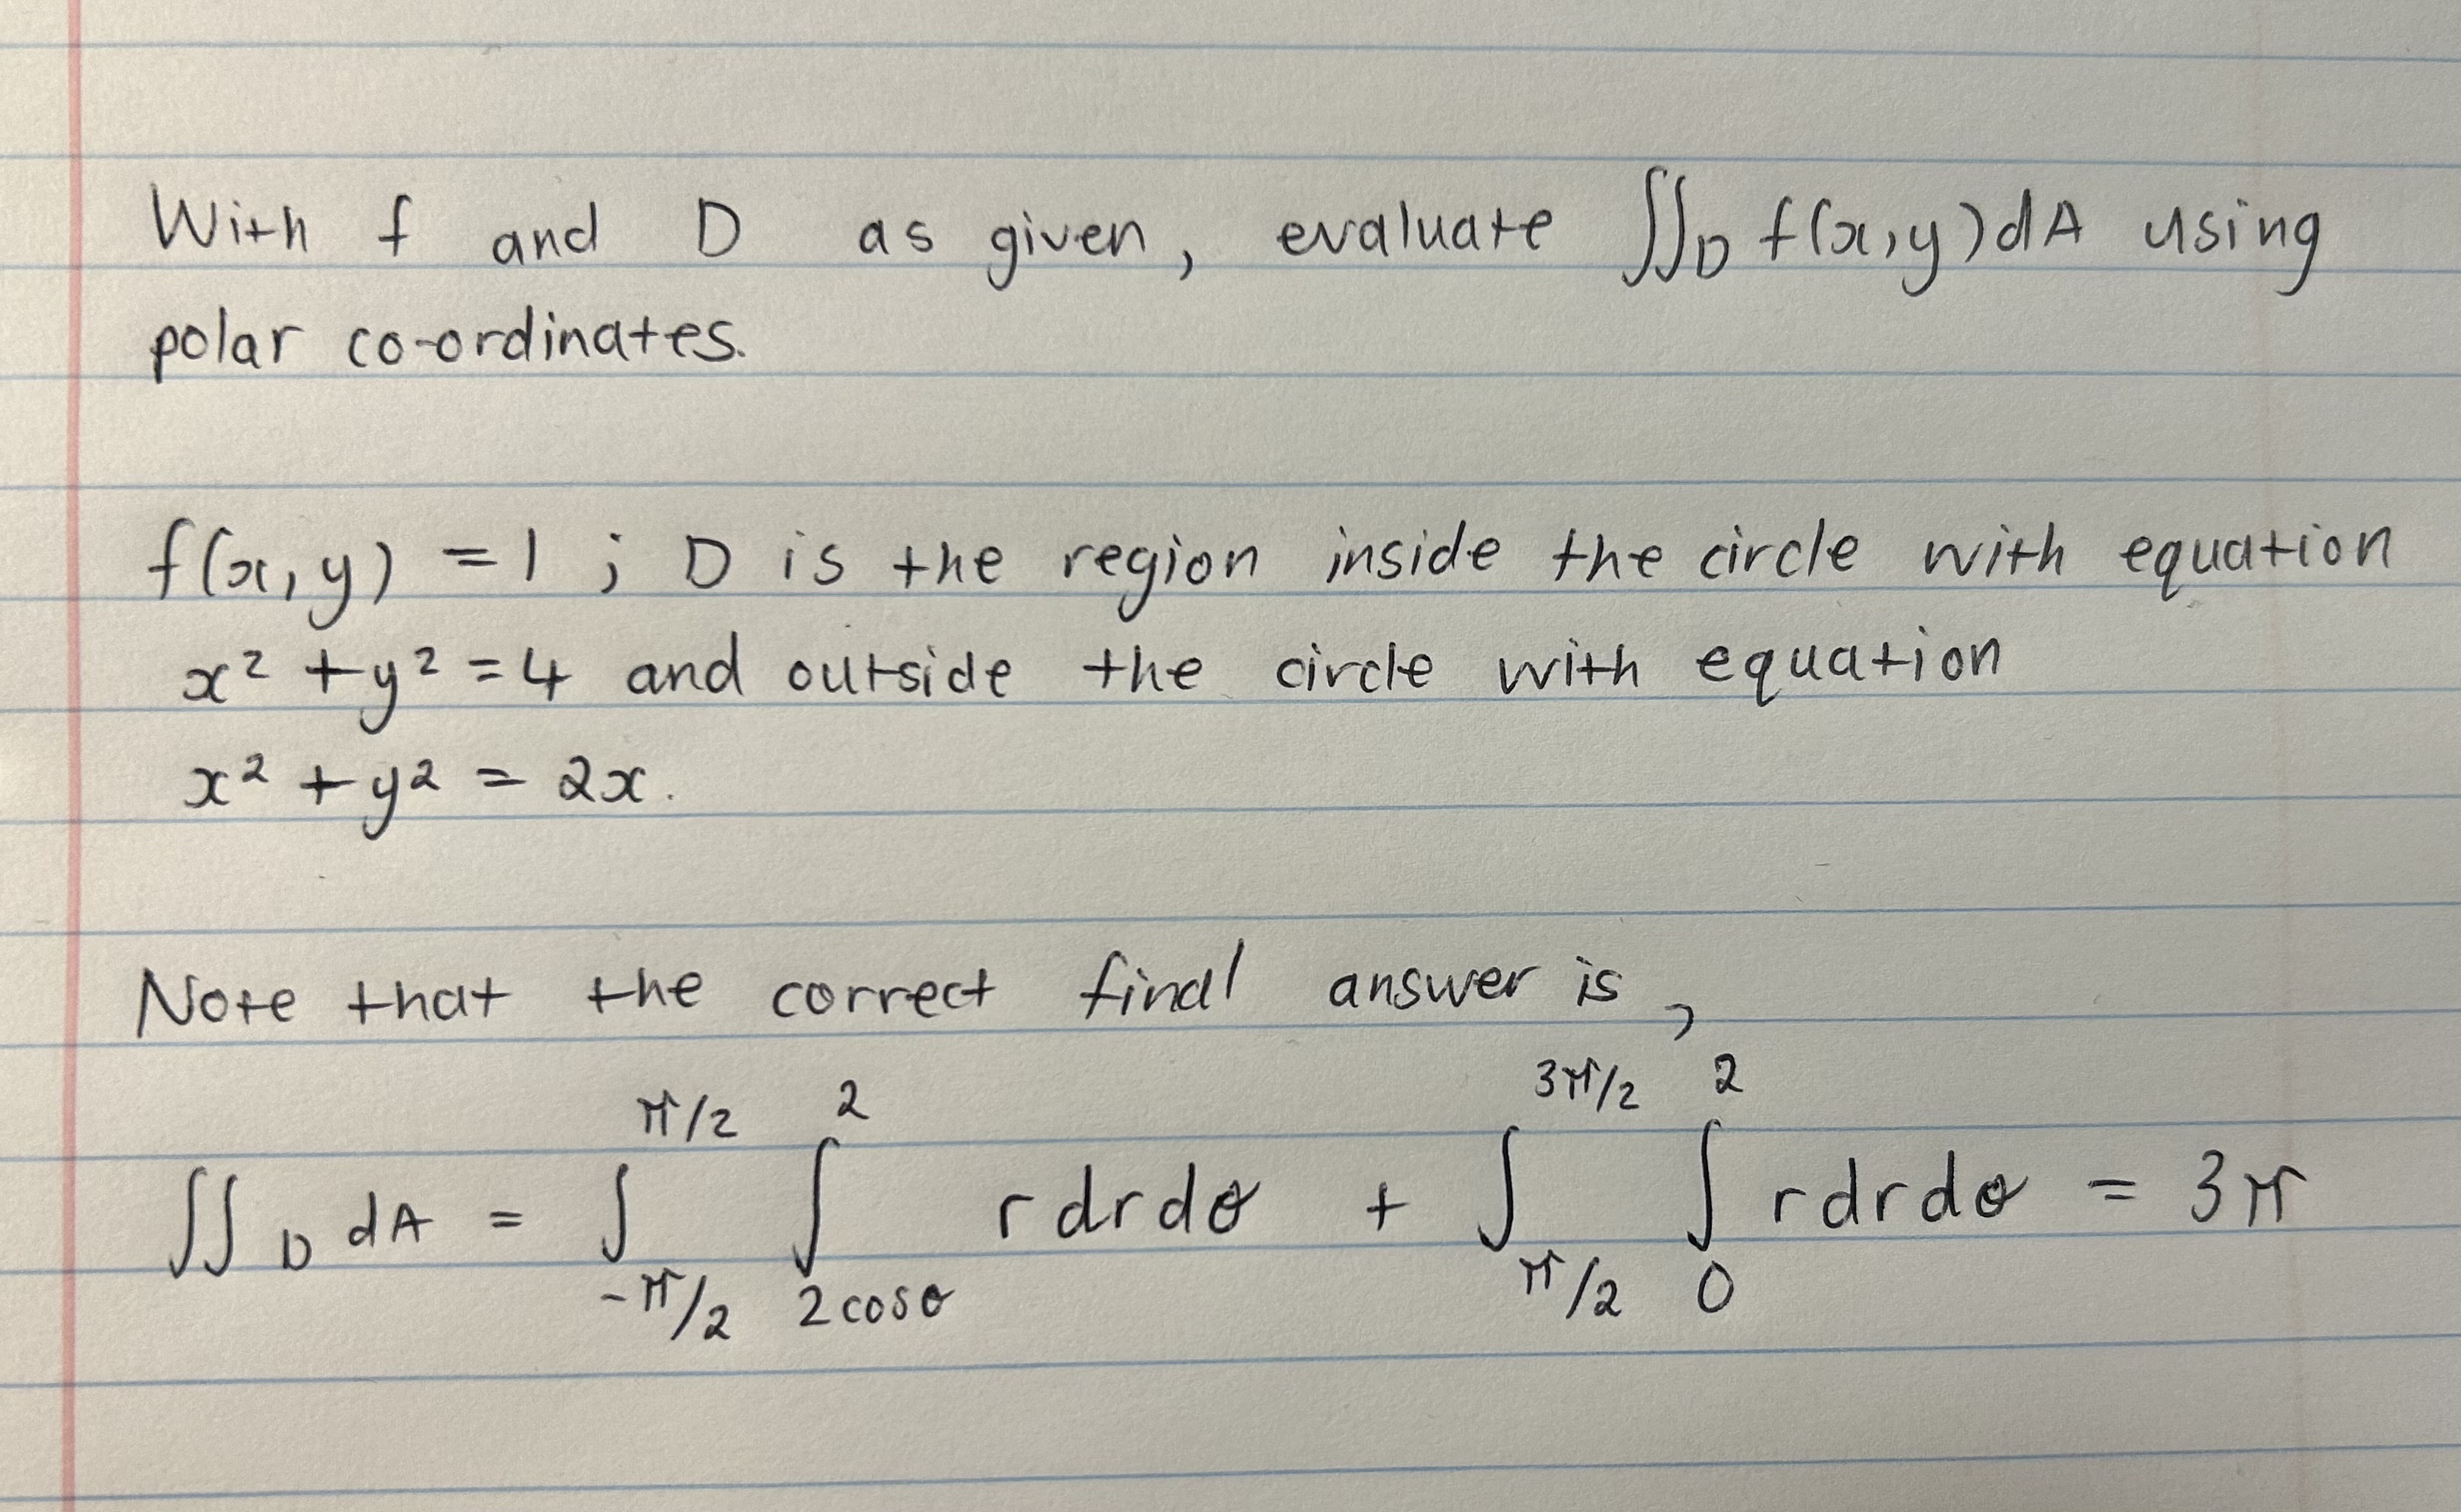 With f and D as given, evaluate ∬_D f(x,y)dA using
polar co-ordinates.
f(x,y) = 1 ; D is the region inside the circle with equation
x² + y² = 4 and outside the circle with equation
x² + y² = 2x.
Note that the correct final answer is,
∬_D dA = ∫_{-π/2}^{π/2} ∫_{2cosθ}^{2} r dr dθ + ∫_{π/2}^{3π/2} ∫_{0}^{2} r dr dθ = 3π